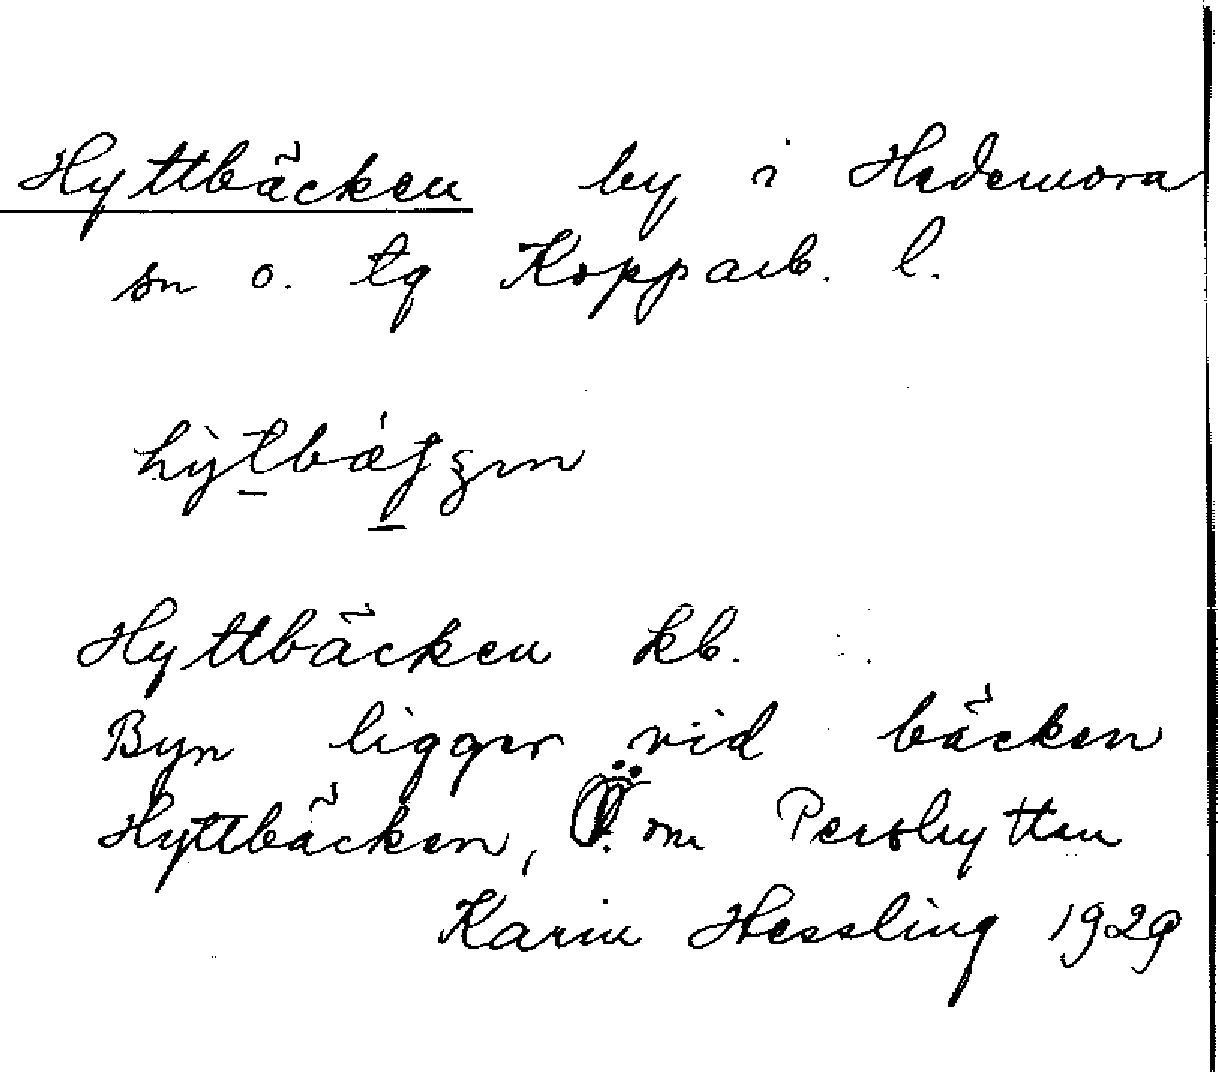 Hyttbäcken by i Hedemora
sn o. tg Kopparb. l.
Hyttbäcken kb.
Byn ligger vid bäcken
Hyttbäcken, Ö. om Pershyttan
Karin Hessling 1929